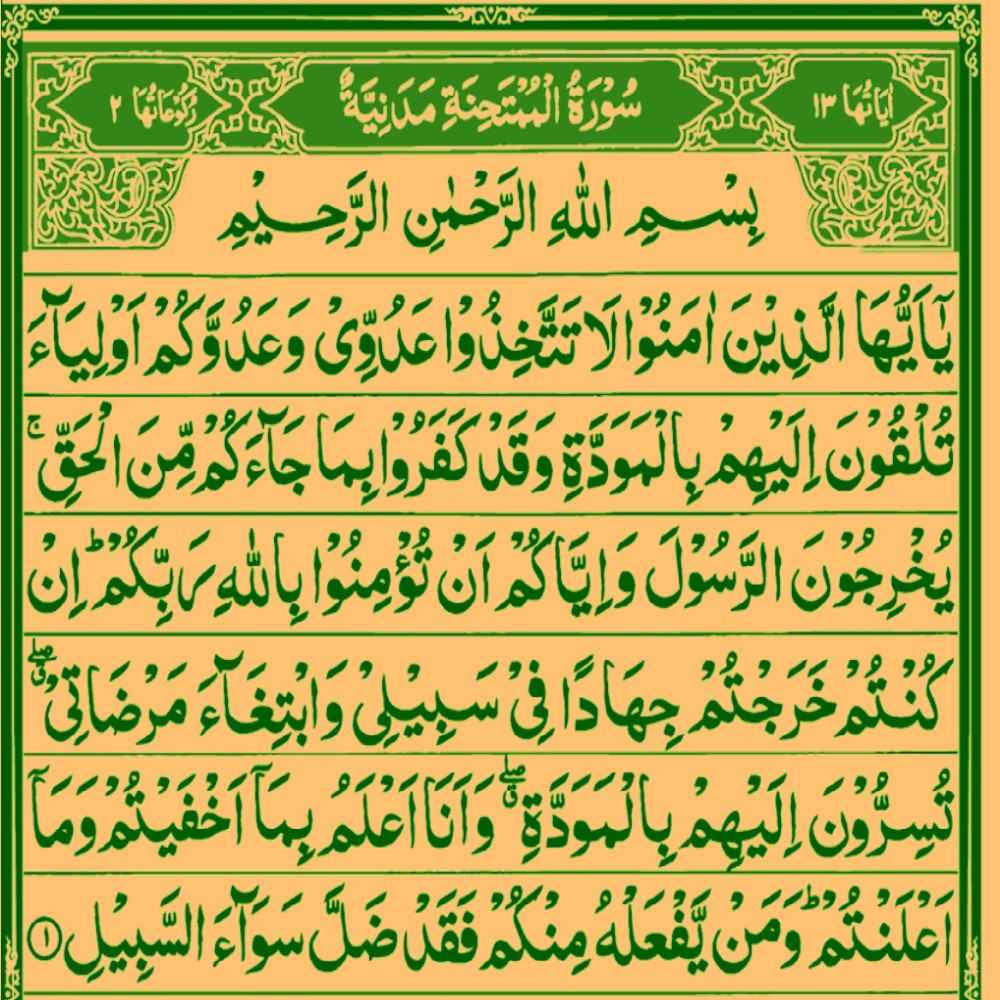 اٰیَاتُهَا ١٣ سُوْرَةُ الْمُمْتَحِنَةِ مَدَنِيَّةٌ رُكُوْعَاتُهَا ٢
بِسْمِ اللهِ الرَّحْمٰنِ الرَّحِيْمِ
يٰٓاَيُّهَا الَّذِيْنَ اٰمَنُوْا لَا تَتَّخِذُوْا عَدُوِّىْ وَعَدُوَّكُمْ اَوْلِيَآءَ
تُلْقُوْنَ اِلَيْهِمْ بِالْمَوَدَّةِ وَقَدْ كَفَرُوْا بِمَا جَآءَكُمْ مِّنَ الْحَقِّ ۚ
يُخْرِجُوْنَ الرَّسُوْلَ وَاِيَّاكُمْ اَنْ تُؤْمِنُوْا بِاللهِ رَبِّكُمْ ؕ اِنْ
كُنْتُمْ خَرَجْتُمْ جِهَادًا فِىْ سَبِيْلِىْ وَابْتِغَآءَ مَرْضَاتِىْ ۖق
تُسِرُّوْنَ اِلَيْهِمْ بِالْمَوَدَّةِ ۖق وَاَنَا اَعْلَمُ بِمَاۤ اَخْفَيْتُمْ وَمَاۤ
اَعْلَنْتُمْ ؕ وَمَنْ يَّفْعَلْهُ مِنْكُمْ فَقَدْ ضَلَّ سَوَآءَ السَّبِيْلِ ١